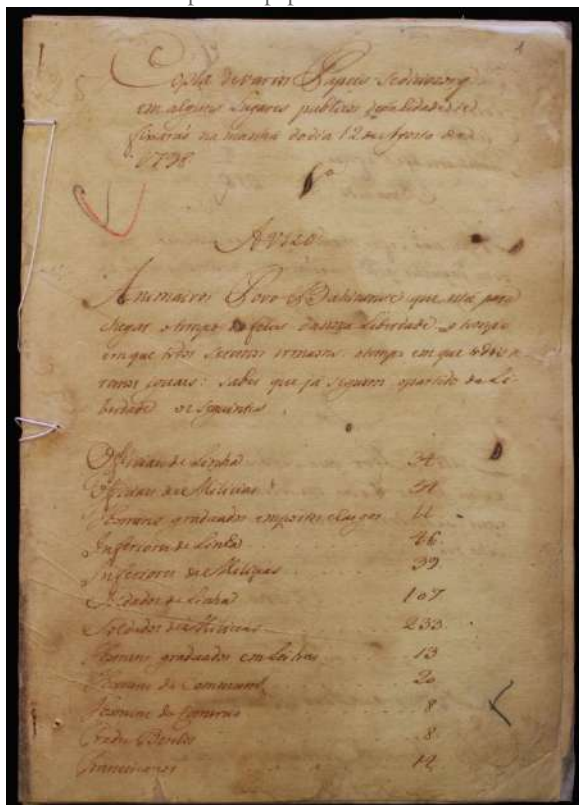 1
Copia de varios Papeis Sediciozos q
em alguns Lugares publicos
fixarão na manhã do dia 12 de Agosto de
1798
1º
Avizo
Animaivos Povo Bahinense que está para
chegar o tempo feliz da nossa Liberdade o tempo
em que todos seremos irmaons, o tempo em que todos se
remos iguais: sabei que já seguirão o partido da Li-
berdade os seguintes
Officiaes de Linha 34
Officiaes de Milicias 54
Homens graduados em postos e cargos 11
Inferiores de Linha 46
Inferiores de Milicias 39
Soldados de Linha 107
Soldados de Milicias 233
Homens graduados em Letras 13
Homens do Commum 20
Homens do Comercio 8
Frades Bentos 8
Franciscanos 14